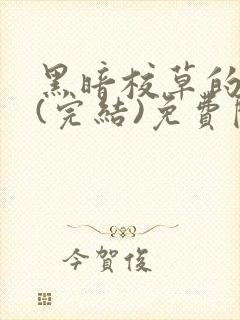 黑暗校草的
(完結)免費閱
今賀俊